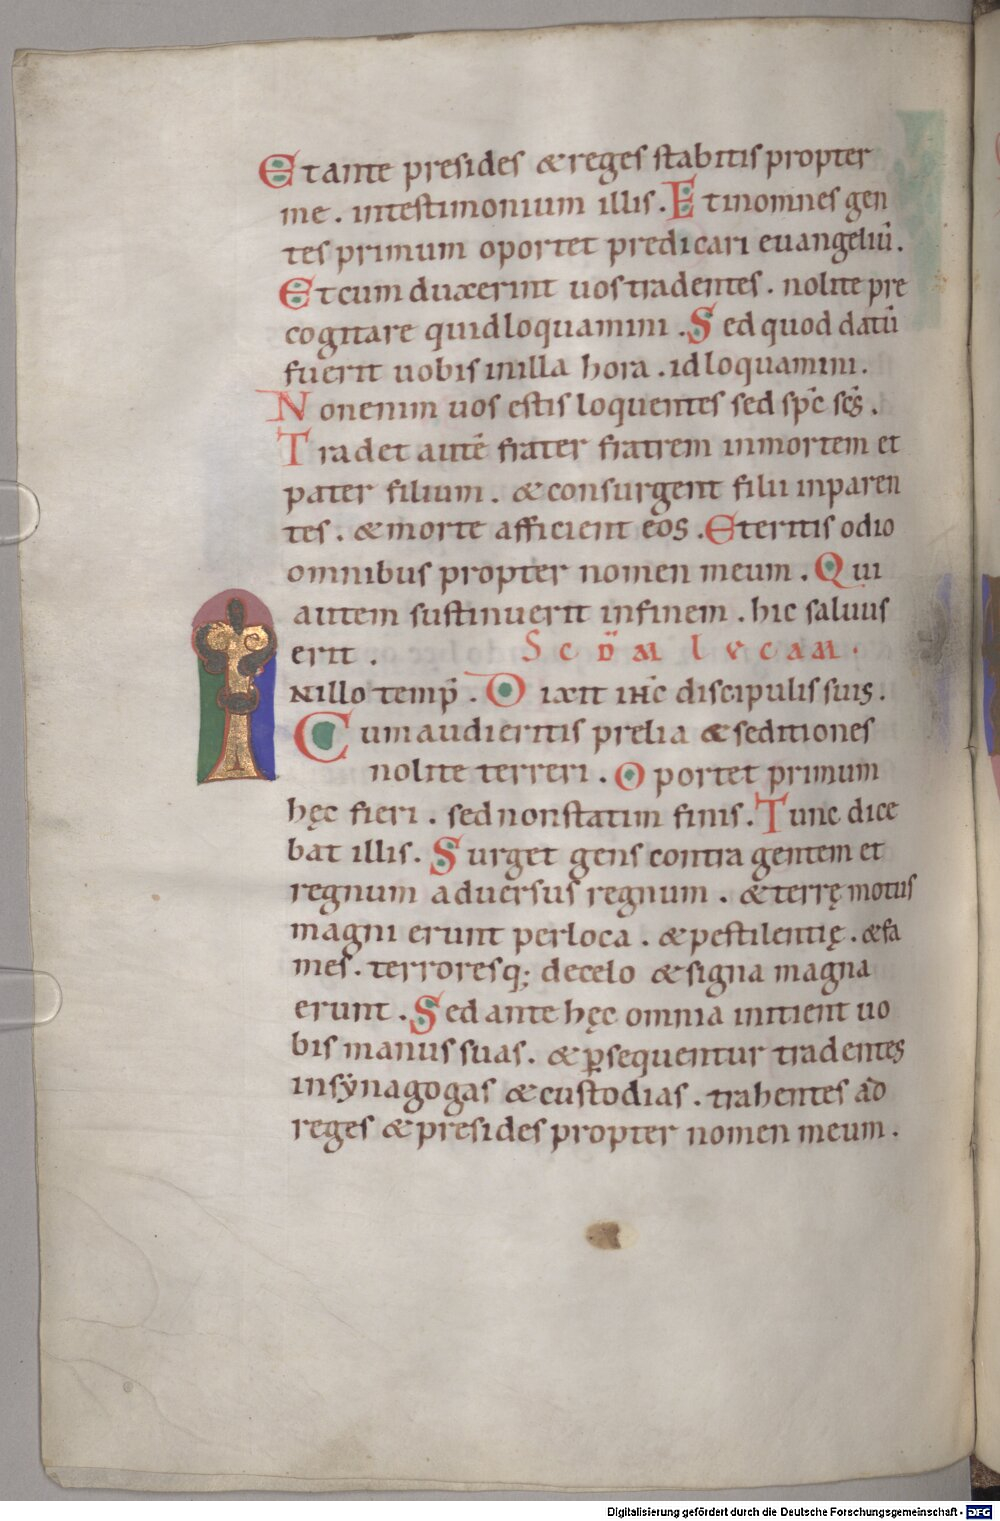 Et ante presides & reges stabitis propter
me . in testimonium illis . Et in omnes gen
tes primum oportet predicari euangeliū .
Et cum duxerint uos tradentes . nolite pre
cogitare quid loquamini . Sed quod datū
fuerit uobis in illa hora . id loquamini .
Non enim uos estis loquentes sed sp̄c sc̄s .
Tradet autē frater fratrem in mortem et
pater filium . & consurgent filii in paren
tes . & morte afficient eos . Et eritis odio
omnibus propter nomen meum . Qui
autem sustinuerit in finem . hic saluus
erit . Scd̄m lucam .
In illo temp̄ . Dixit ihc̄ discipulis suis .
Cum audieritis prelia & seditiones
nolite terreri . Oportet primum
hęc fieri . sed non statim finis . Tunc dice
bat illis . Surget gens contra gentem et
regnum aduersus regnum . & terrę motus
magni erunt per loca . & pestilentię . & fa
mes . terroresq; de celo & signa magna
erunt . Sed ante hęc omnia initient uo
bis manus suas . & ꝑsequentur tradentes
in sẏnagogas & custodias . trahentes ad
reges & presides propter nomen meum .
Digitalisierung gefördert durch die Deutsche Forschungsgemeinschaft - DFG